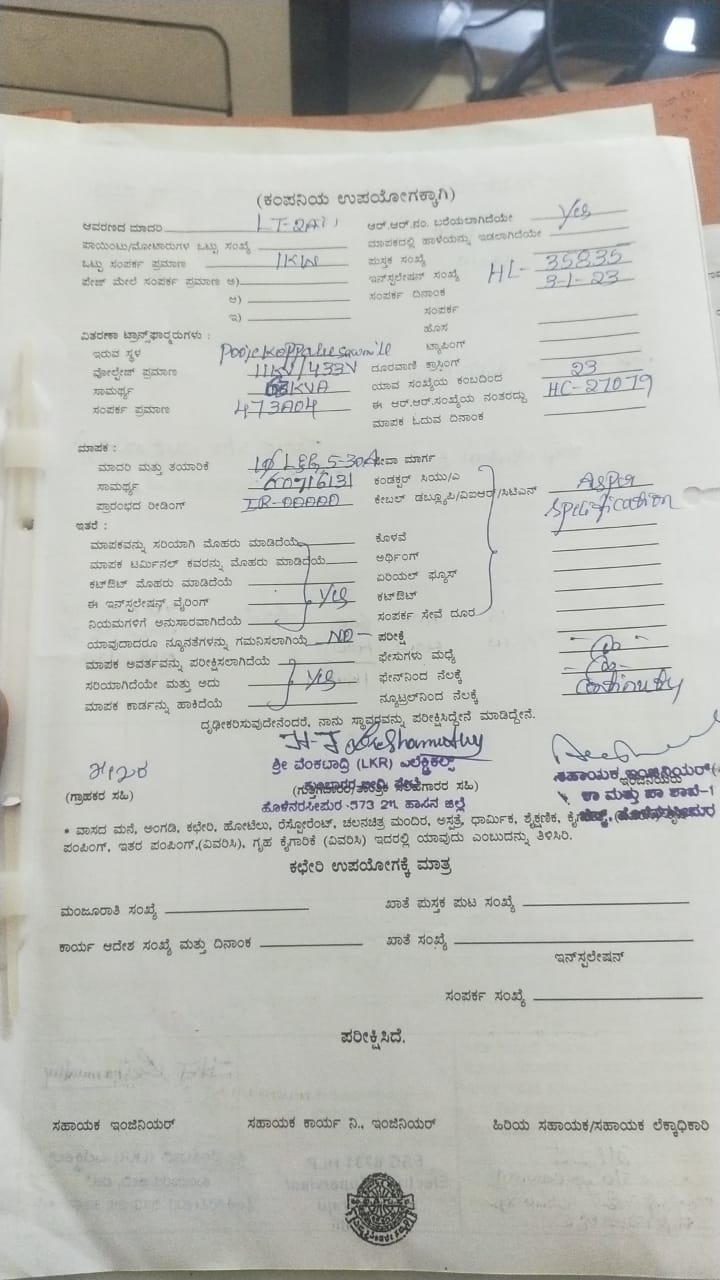 (ಕಂಪನಿಯ ಉಪಯೋಗಕ್ಕಾಗಿ)
ಆವರಣದ ಮಾದರಿ LT-2A ಆರ್.ಆರ್.ನಂ. ಬರೆಯಲಾಗಿದೆಯೇ Yes
ಪಾಯಿಂಟು/ಮೋಟಾರುಗಳ ಒಟ್ಟು ಸಂಖ್ಯೆ ಮಾಪಕದಲ್ಲಿ ಹಾಳೆಯನ್ನು ಇಡಲಾಗಿದೆಯೇ
ಒಟ್ಟು ಸಂಪರ್ಕ ಪ್ರಮಾಣ 1KW ಪುಸ್ತಕ ಸಂಖ್ಯೆ
ಪೇಜ್ ಮೇಲೆ ಸಂಪರ್ಕ ಪ್ರಮಾಣ ಅ) ಇನ್‌ಸ್ಟಲೇಷನ್ ಸಂಖ್ಯೆ HL-35835
ಆ) ಸಂಪರ್ಕ ದಿನಾಂಕ 3-1-23
ಇ) ಸಂಪರ್ಕ
ಹೊಸ
ವಿತರಣಾ ಟ್ರಾನ್ಸ್‌ಫಾರ್ಮರುಗಳು : ಟ್ಯಾಪಿಂಗ್
ಇರುವ ಸ್ಥಳ
ವೋಲ್ಟೇಜ್ ಪ್ರಮಾಣ 11KV/433V ದೂರವಾಣಿ ಕ್ರಾಸಿಂಗ್
ಸಾಮರ್ಥ್ಯ 63KVA ಯಾವ ಸಂಖ್ಯೆಯ ಕಂಬದಿಂದ 23
ಸಂಪರ್ಕ ಪ್ರಮಾಣ 473A04 ಈ ಆರ್.ಆರ್.ಸಂಖ್ಯೆಯ ನಂತರದ್ದು HC-27079
ಮಾಪಕ ಓದುವ ದಿನಾಂಕ
ಮಾಪಕ :
ಮಾದರಿ ಮತ್ತು ತಯಾರಿಕೆ 1ϕ L&G 5-30A ಸೇವಾ ಮಾರ್ಗ
ಸಾಮರ್ಥ್ಯ 60716131 ಕಂಡಕ್ಟರ್ ಸಿಯು/ಎ
ಪ್ರಾರಂಭದ ರೀಡಿಂಗ್ IR-00000 ಕೇಬಲ್ ಡಬ್ಲ್ಯೂಪಿ/ವಿಐಆರ್/ಸಿಟಿಎನ್ As per
Specification
ಇತರೆ :
ಮಾಪಕವನ್ನು ಸರಿಯಾಗಿ ಮೊಹರು ಮಾಡಿದೆಯೆ ಕೊಳವೆ
ಮಾಪಕ ಟರ್ಮಿನಲ್ ಕವರನ್ನು ಮೊಹರು ಮಾಡಿದೆಯೆ ಅರ್ಥಿಂಗ್
ಕಟ್‌ಔಟ್ ಮೊಹರು ಮಾಡಿದೆಯೆ ಏರಿಯಲ್ ಫ್ಯೂಸ್
ಈ ಇನ್‌ಸ್ಟಲೇಷನ್ ವೈರಿಂಗ್ Yes ಕಟ್‌ಔಟ್
ನಿಯಮಗಳಿಗೆ ಅನುಸಾರವಾಗಿದೆಯೆ ಸಂಪರ್ಕ ಸೇವೆ ದೂರ
ಯಾವುದಾದರೂ ನ್ಯೂನತೆಗಳನ್ನು ಗಮನಿಸಲಾಗಿಯೆ NO ಪರೀಕ್ಷೆ
ಮಾಪಕ ಅವರ್ತವನ್ನು ಪರೀಕ್ಷಿಸಲಾಗಿದೆಯೆ ಫೇಸುಗಳು ಮಧ್ಯೆ
ಸರಿಯಾಗಿದೆಯೇ ಮತ್ತು ಅದು Yes ಫೇಸ್‌ನಿಂದ ನೆಲಕ್ಕೆ
ಮಾಪಕ ಕಾರ್ಡನ್ನು ಹಾಕಿದೆಯೆ ನ್ಯೂಟ್ರಲ್‌ನಿಂದ ನೆಲಕ್ಕೆ Continuity
ದೃಢೀಕರಿಸುವುದೇನೆಂದರೆ, ನಾನು ಸ್ಥಾವರವನ್ನು ಪರೀಕ್ಷಿಸಿದ್ದೇನೆ ಮಾಡಿದ್ದೇನೆ.
ಶ್ರೀ ವೆಂಕಟಾದ್ರಿ (LKR) ಎಲೆಕ್ಟ್ರಿಕಲ್ಸ್ ಸಹಾಯಕ ಇಂಜಿನಿಯರ್
(ಗ್ರಾಹಕರ ಸಹಿ) ಇಂಜಿನಿಯರು
ಹೊಳೆನರಸೀಪುರ -573 211, ಹಾಸನ ಜಿಲ್ಲೆ
* ವಾಸದ ಮನೆ, ಅಂಗಡಿ, ಕಛೇರಿ, ಹೋಟೆಲು, ರೆಸ್ಟೋರೆಂಟ್, ಚಲನಚಿತ್ರ ಮಂದಿರ, ಅಸ್ಪತ್ರೆ, ಧಾರ್ಮಿಕ, ಶೈಕ್ಷಣಿಕ,
ಪಂಪಿಂಗ್, ಇತರ ಪಂಪಿಂಗ್,(ವಿವರಿಸಿ), ಗೃಹ ಕೈಗಾರಿಕೆ (ವಿವರಿಸಿ) ಇದರಲ್ಲಿ ಯಾವುದು ಎಂಬುದನ್ನು ತಿಳಿಸಿರಿ.
ಕಛೇರಿ ಉಪಯೋಗಕ್ಕೆ ಮಾತ್ರ
ಮಂಜೂರಾತಿ ಸಂಖ್ಯೆ ಖಾತೆ ಪುಸ್ತಕ ಪುಟ ಸಂಖ್ಯೆ
ಕಾರ್ಯ ಆದೇಶ ಸಂಖ್ಯೆ ಮತ್ತು ದಿನಾಂಕ ಖಾತೆ ಸಂಖ್ಯೆ
ಇನ್‌ಸ್ಟಲೇಷನ್
ಸಂಪರ್ಕ ಸಂಖ್ಯೆ
ಪರೀಕ್ಷಿಸಿದೆ.
ಸಹಾಯಕ ಇಂಜಿನಿಯರ್ ಸಹಾಯಕ ಕಾರ್ಯ ನಿ., ಇಂಜಿನಿಯರ್ ಹಿರಿಯ ಸಹಾಯಕ/ಸಹಾಯಕ ಲೆಕ್ಕಾಧಿಕಾರಿ